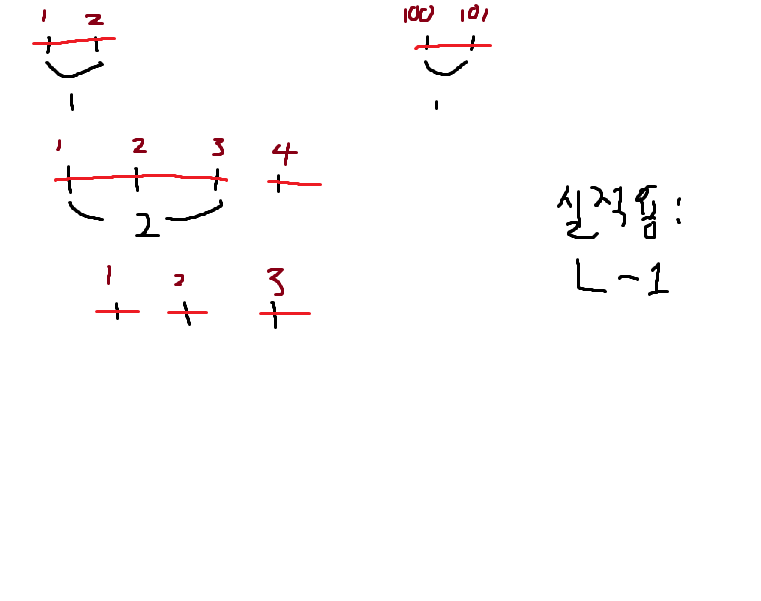 1 2
1
100 101
1
1 2 3 4
2
1 2 3
실적용:
L-1